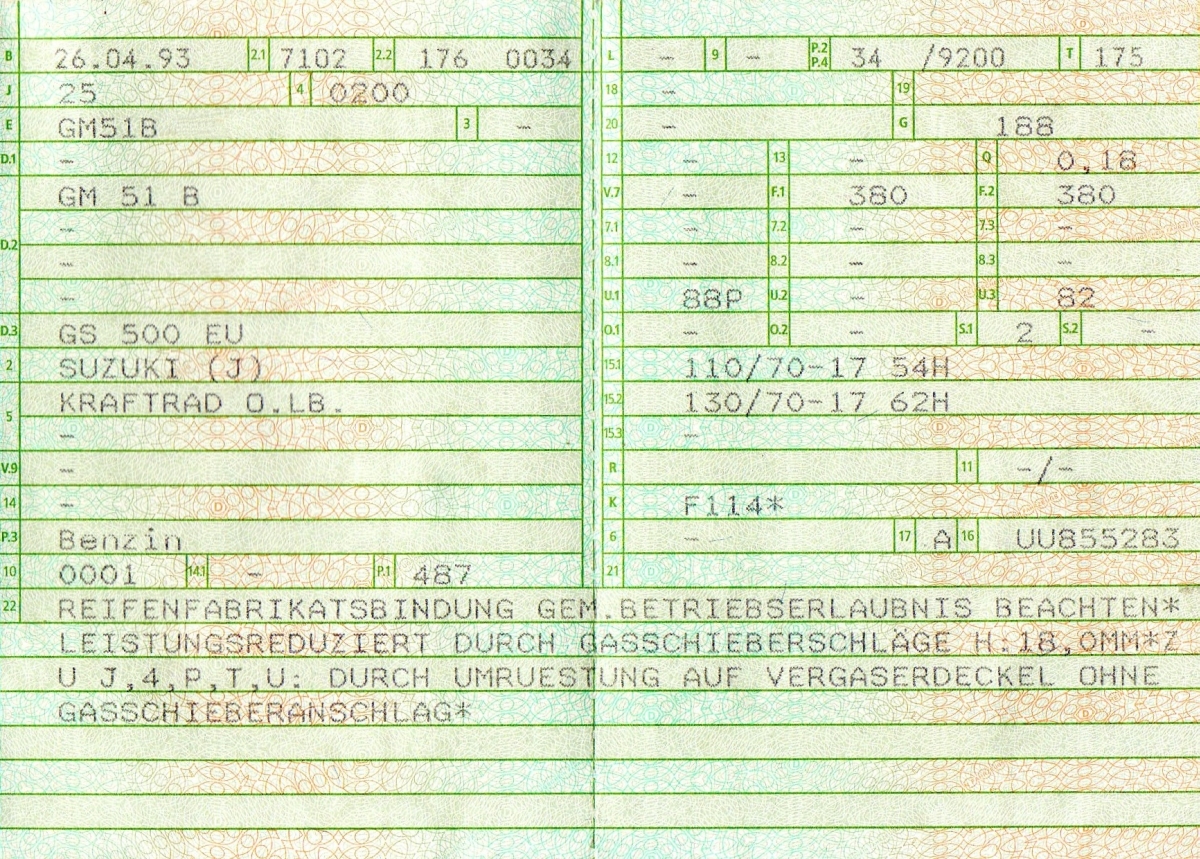 B 26.04.93 2.1 7102 2.2 176 0034
J 25 4 0200
E GM51B 3 –
D.1 –
GM 51 B
D.2 –
–
–
D.3 GS 500 EU
2 SUZUKI (J)
5 KRAFTRAD O.LB.
–
V.9 –
14 –
P.3 Benzin
10 0001 14.1 – P.1 487
L – 9 – P.2 P.4 34 /9200 T 175
18 – 19
20 – G 188
12 – 13 – Q 0,18
V.7 – F.1 380 F.2 380
7.1 – 7.2 – 7.3 –
8.1 – 8.2 – 8.3 –
U.1 88P U.2 – U.3 82
O.1 – O.2 – S.1 2 S.2 –
15.1 110/70-17 54H
15.2 130/70-17 62H
15.3 –
R 11 –/–
K F114*
6 – 17 A 16 UU855283
21
22 REIFENFABRIKATSBINDUNG GEM.BETRIEBSERLAUBNIS BEACHTEN*
LEISTUNGSREDUZIERT DURCH GASSCHIEBERSCHLÄGE H:18,0MM*Z
U J,4,P,T,U: DURCH UMRUESTUNG AUF VERGASERDECKEL OHNE
GASSCHIEBERANSCHLAG*